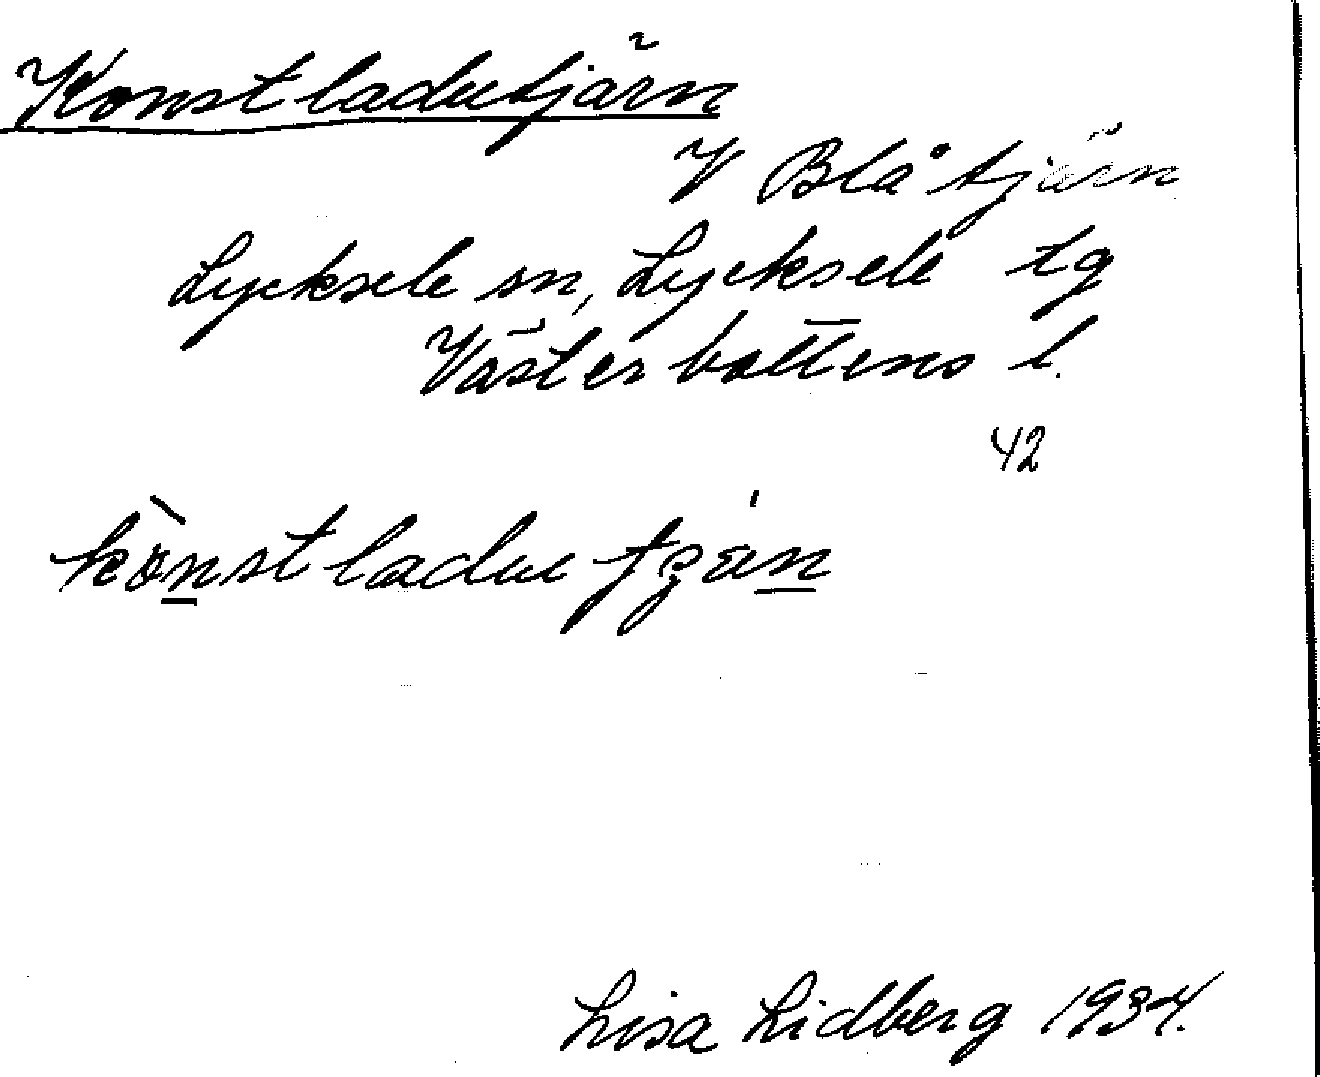 Konstladutjärn
V Blåtjärn
Lycksele sn, Lycksele tg
Västerbottens l.
42
kònstladu
Lisa Lidberg 1934.